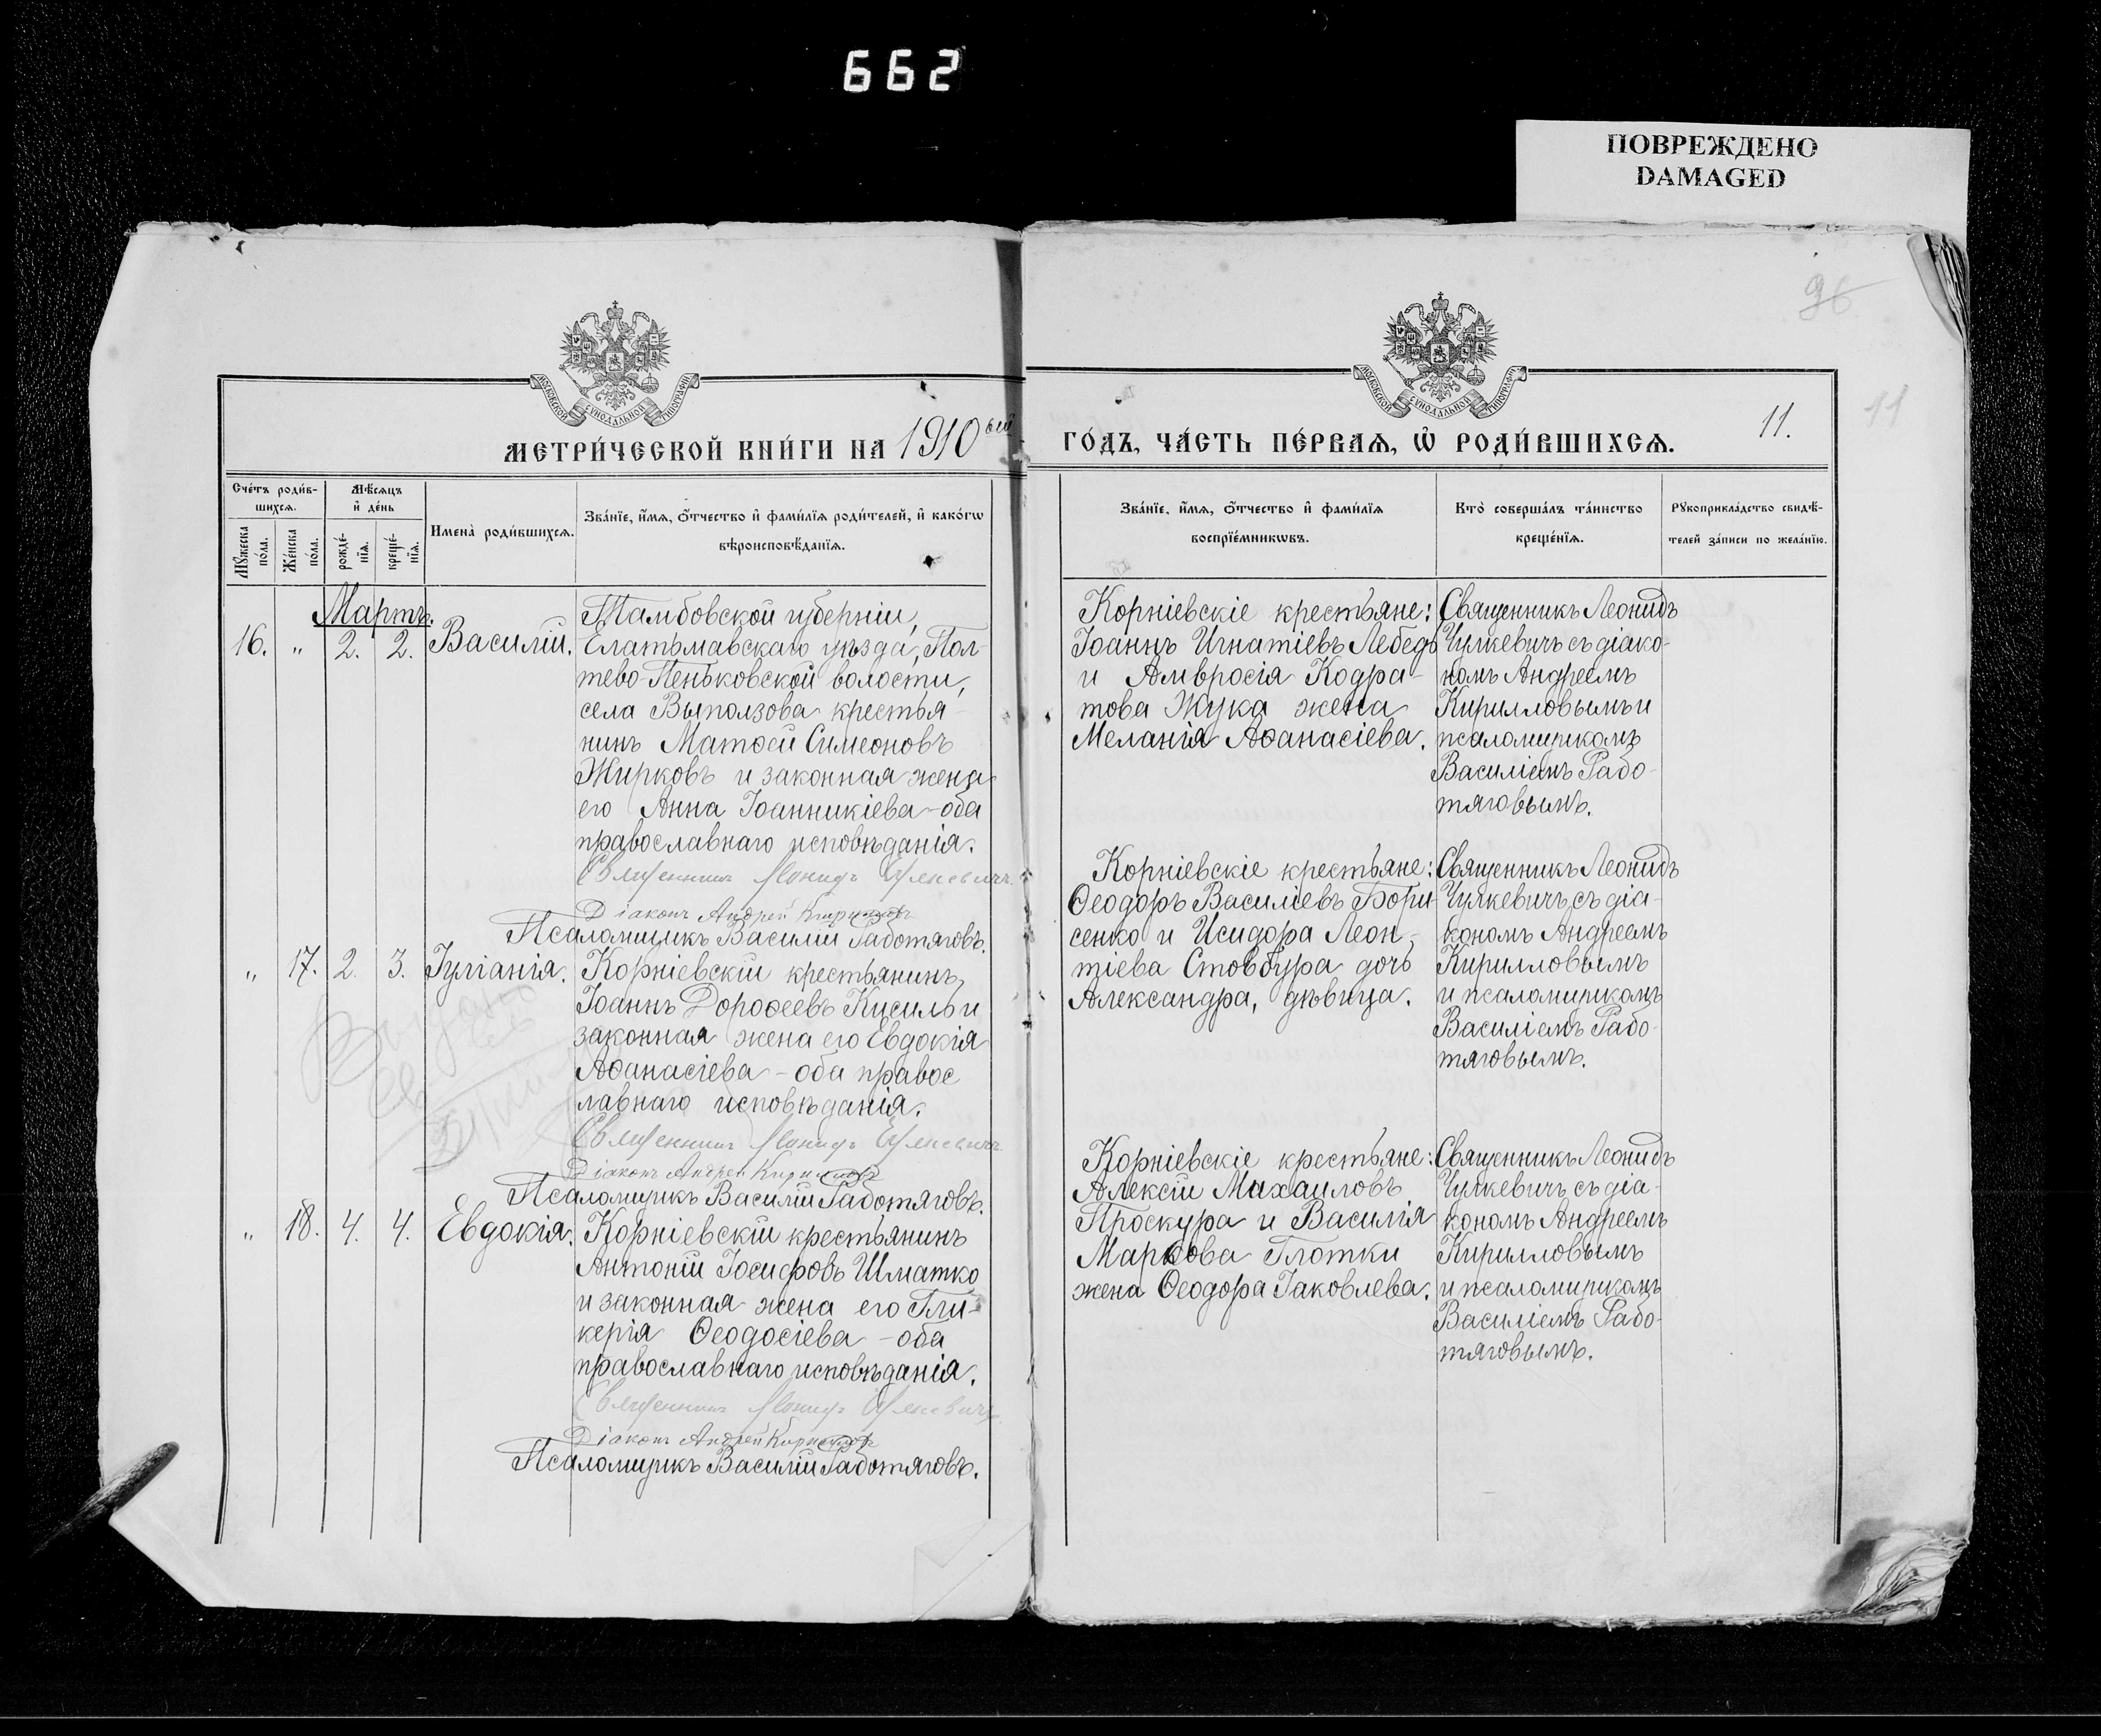 662
ПОВРЕЖДЕНО
DAMAGED
96
11
МОСКОВСКОЙ СѴНОДАЛЬНОЙ ТИПОГРАФІИ
МОСКОВСКОЙ СѴНОДАЛЬНОЙ ТИПОГРАФІИ
МЕТРИ́ЧЕСКОЙ КНИ́ГИ НА 1910ый
ГО́ДЪ, ЧА́СТЬ ПЕ́РВАѦ, Ѡ҆ РОДИ́ВШИХСѦ.
11.
Сче́тъ роди́в-
шихсѧ.
Мѣ́сѧцъ
и҆ де́нь
Мꙋ́жеска
по́ла.
Же́нска
по́ла.
рожде́-
нїѧ.
креще́-
нїѧ.
Имена̀ роди́вшихсѧ.
Зва́нїе, и҆́мѧ, ѻ҆́тчество и҆ фами́лїѧ роди́телей, и҆ како́гѡ
вѣроисповѣ́данїѧ.
Зва́нїе, и҆́мѧ, ѻ҆́тчество и҆ фами́лїѧ
воспрїе́мникѡвъ.
Кто̀ соверша́лъ та́инство
креще́нїѧ.
Рꙋкоприкла́дство свидѣ́-
телей за́писи по жела́нїю.
Мартъ.
16. " 2. 2. Василій.
Тамбовской губерніи,
Елатьмавскаго уѣзда, Пол-
тево-Пеньковской волости,
села Выползова крестья-
нинъ Матѳей Симеоновъ
Жирковъ и законная жена
его Анна Іоанникіева – оба
православнаго исповѣданія.
Священникъ Леонидъ Чулкевичъ.
Діаконъ Андрей Кирилловъ
Псаломщикъ Василій Работяговъ.
Корніевскіе крестьяне:
Іоаннъ Игнатіевъ Лебедь
и Амвросія Кодра-
това Жука жена
Меланія Аѳанасіева.
Священникъ Леонидъ
Чулкевичъ съ діако-
номъ Андреемъ
Кирилловымъ и
псаломщикомъ
Василіемъ Рабо-
тяговымъ.
" 17. 2. 3. Іуліанія.
Корніевскій крестьянинъ
Іоаннъ Дороѳеевъ Кисиль и
законная жена его Евдокія
Аѳанасіева – оба правос
лавнаго исповѣданія.
Священникъ Леонидъ Чулкевичъ.
Діаконъ Андрей Кирилловъ
Псаломщикъ Василій Работяговъ.
Корніевскіе крестьяне:
Ѳеодоръ Василіевъ Бори
сенко и Исидора Леон-
тіева Стовбура дочь
Александра, дѣвица.
Священникъ Леонидъ
Чулкевичъ съ діа-
кономъ Андреемъ
Кирилловымъ
и псаломщикомъ
Василіемъ Рабо-
тяговымъ.
" 18. 4. 4. Евдокія.
Корніевскій крестьянинъ
Антоній Іосифовъ Шматко
и законная жена его Гли-
керія Ѳеодосіева – оба
православнаго исповѣданія.
Священникъ Леонидъ Чулкевичъ.
Діаконъ Андрей Кирилловъ
Псаломщикъ Василій Работяговъ.
Корніевскіе крестьяне:
Алексій Михаиловъ
Проскура и Василія
Маркова Глотки
жена Ѳеодора Іаковлева.
Священникъ Леонидъ
Чулкевичъ съ діа-
кономъ Андреемъ
Кирилловымъ
и псаломщикомъ
Василіемъ Рабо-
тяговымъ.